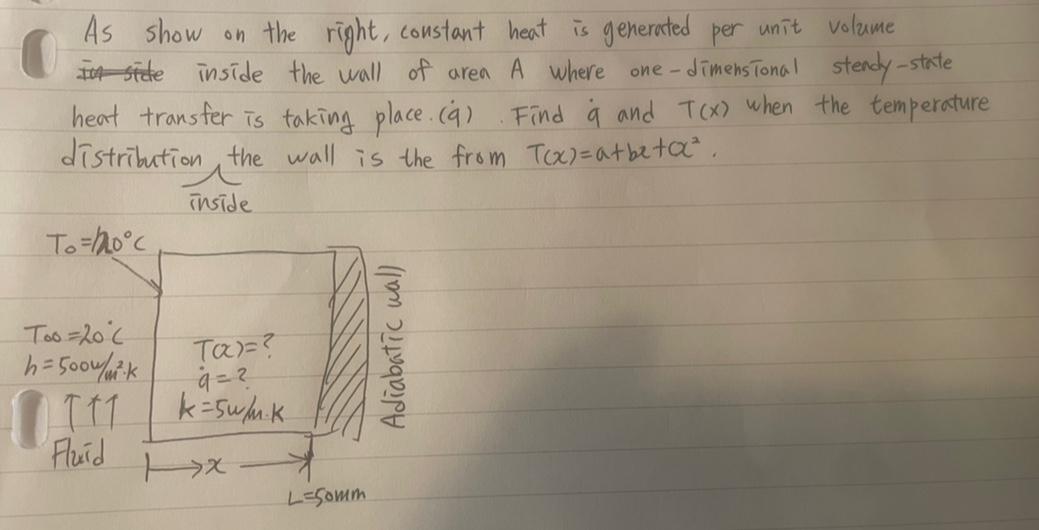 As show on the right, constant heat is generated per unit volume
inside the wall of area A where one-dimensional steady-state
heat transfer is taking place. (q̇) . Find q̇ and T(x) when the temperature
distribution inside the wall is the from T(x)=a+bx+cx².
T₀=120°C
T∞=20°C
h=500w/m²·k
↑↑↑
Fluid
T(x)=?
q̇=?
k=5w/m·k
Adiabatic wall
x
L=50mm